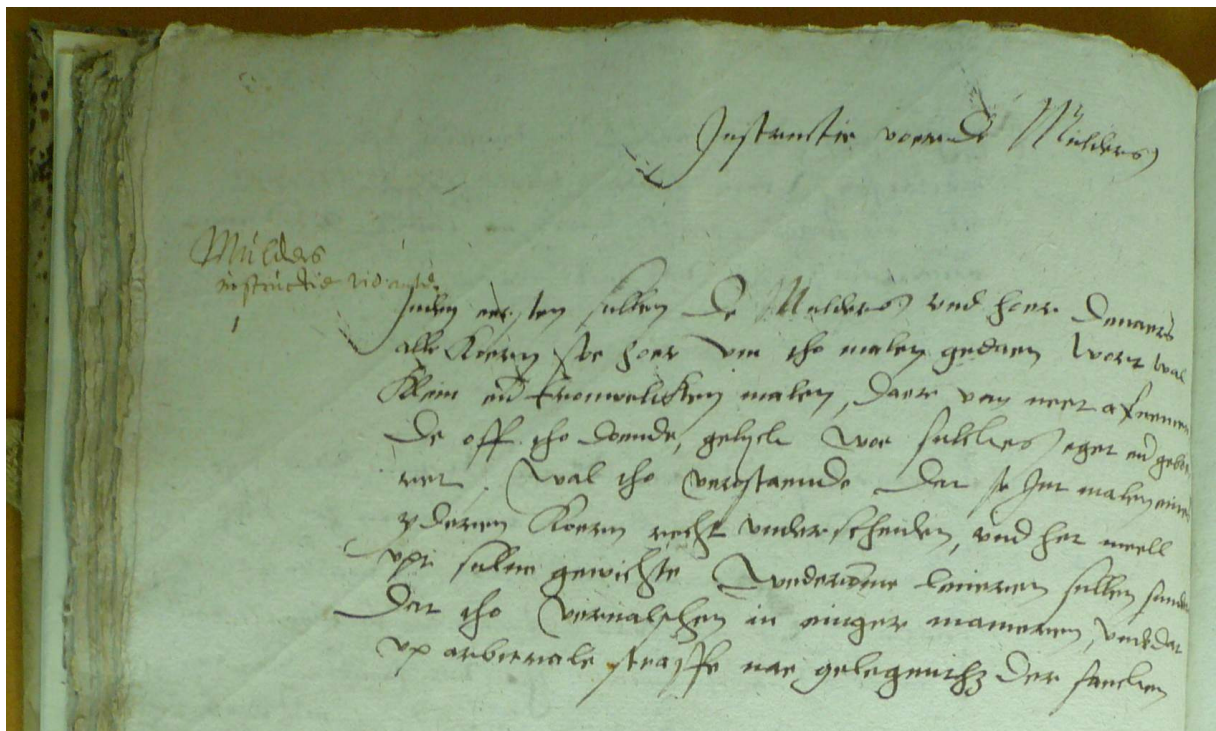 Instructie voer de Mulders
Mulders
instructie
Inden eersten sullen de Mulders vnd hoer denaers
alle Koern soe hoer om tho malen gedaen wort wal
klein end trouwelicken malen, daer van neet afneme
de off tho doende, gelyck woe sulckes eget end gebo
ret. Wal tho verstaende dat se Int malen eines
yderen Koern recht underscheiden, vnd het meell
vpt sulue gewichte wederomme leueren sullen sunder
dat tho verualschen in einiger manieren, vnd dat
vp arbitrale straffe nae gelegentheit der saecken